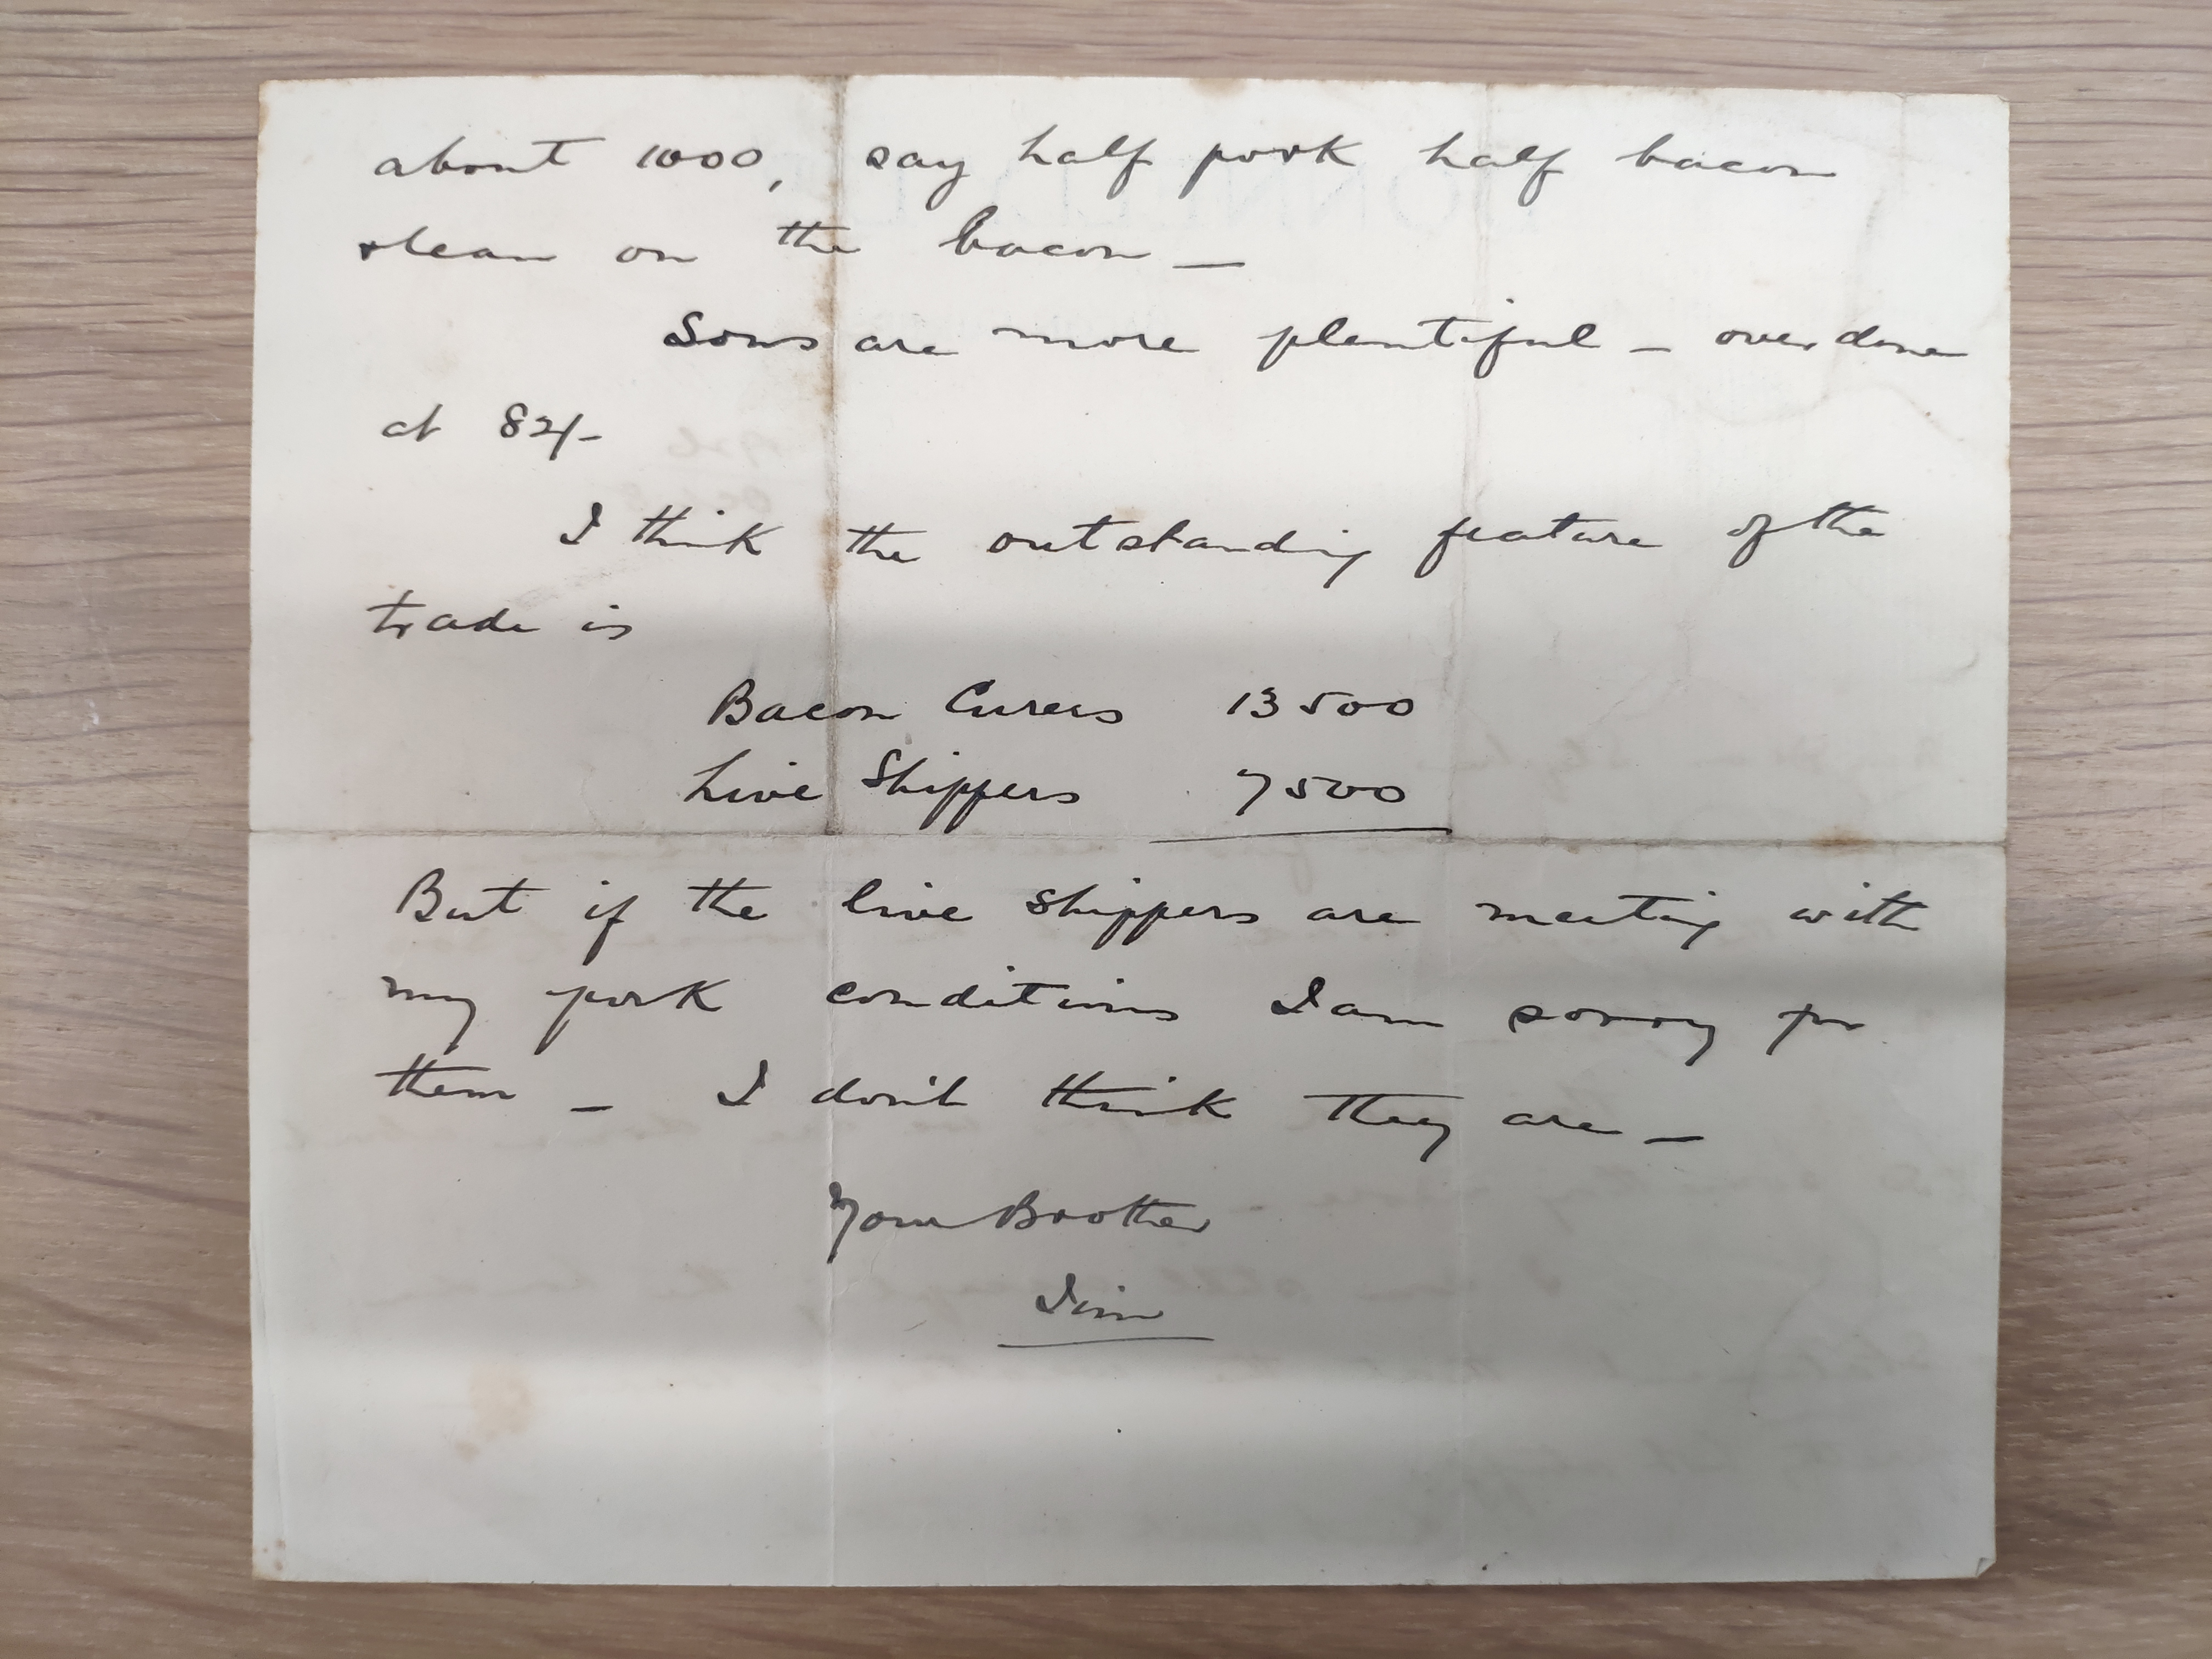 about 1000, say half pork half bacon
& lean on the bacon —
Sows are more plentiful — over done
at 82/-
I think the outstanding feature of the
trade is
Bacon Curers 13500
Live Shippers 7500
But if the live shippers are meeting with
my pork conditions I am sorry for
them — I don't think they are —
Your Brother
Jim